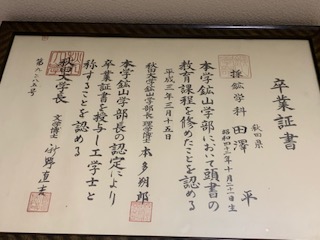 卒業証書
秋田県
採鉱学科 田澤 平
昭和四十三年十月二十一日生
本学鉱山学部において頭書の
教育課程を修めたことを認める
平成三年三月十五日
秋田大学鉱山学部長 理学博士 本多朔郎
本学鉱山学部長の認定により
卒業証書を授与し工学士と
称することを認める
秋田大学長 文学博士 新野直吉